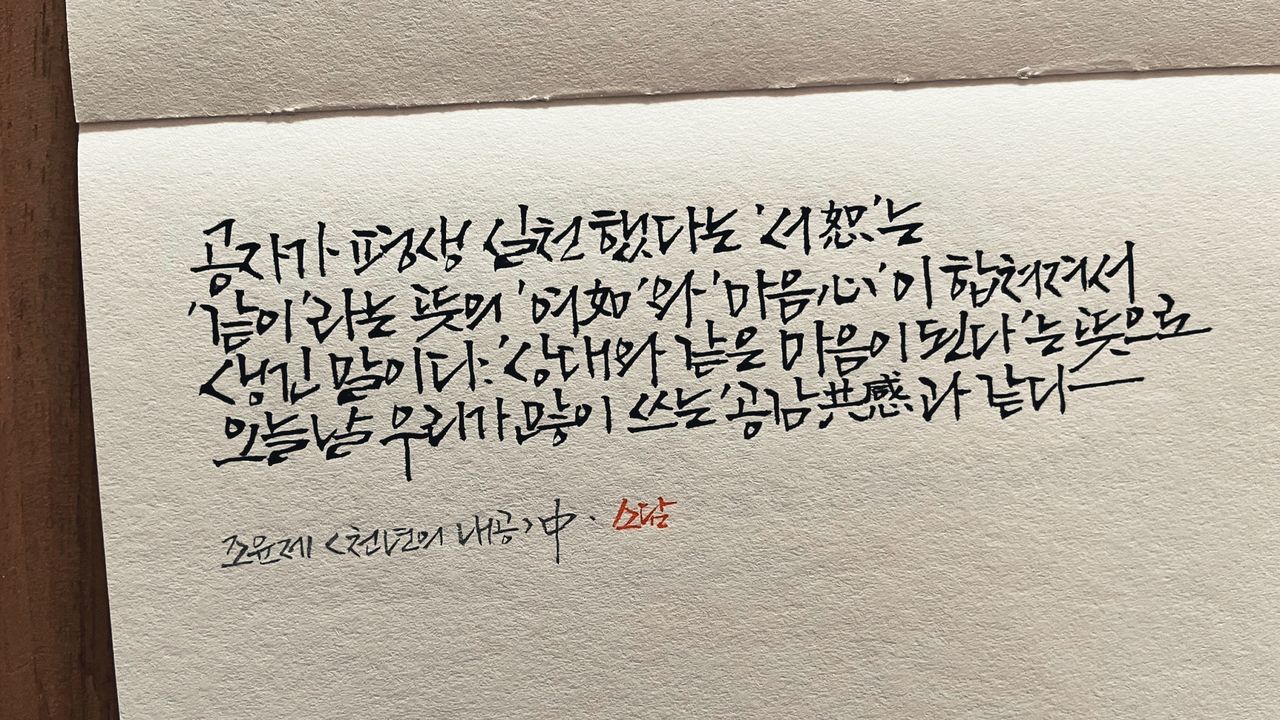 공자가 평생 실천했다는 '서恕'는
'같이'라는 뜻의 '여如'와 '마음心'이 합쳐져서
생긴 말이다. '상대와 같은 마음이 된다'는 뜻으로
오늘날 우리가 많이 쓰는 '공감共感'과 같다—
조윤제 <천년의 내공> 中. 소담